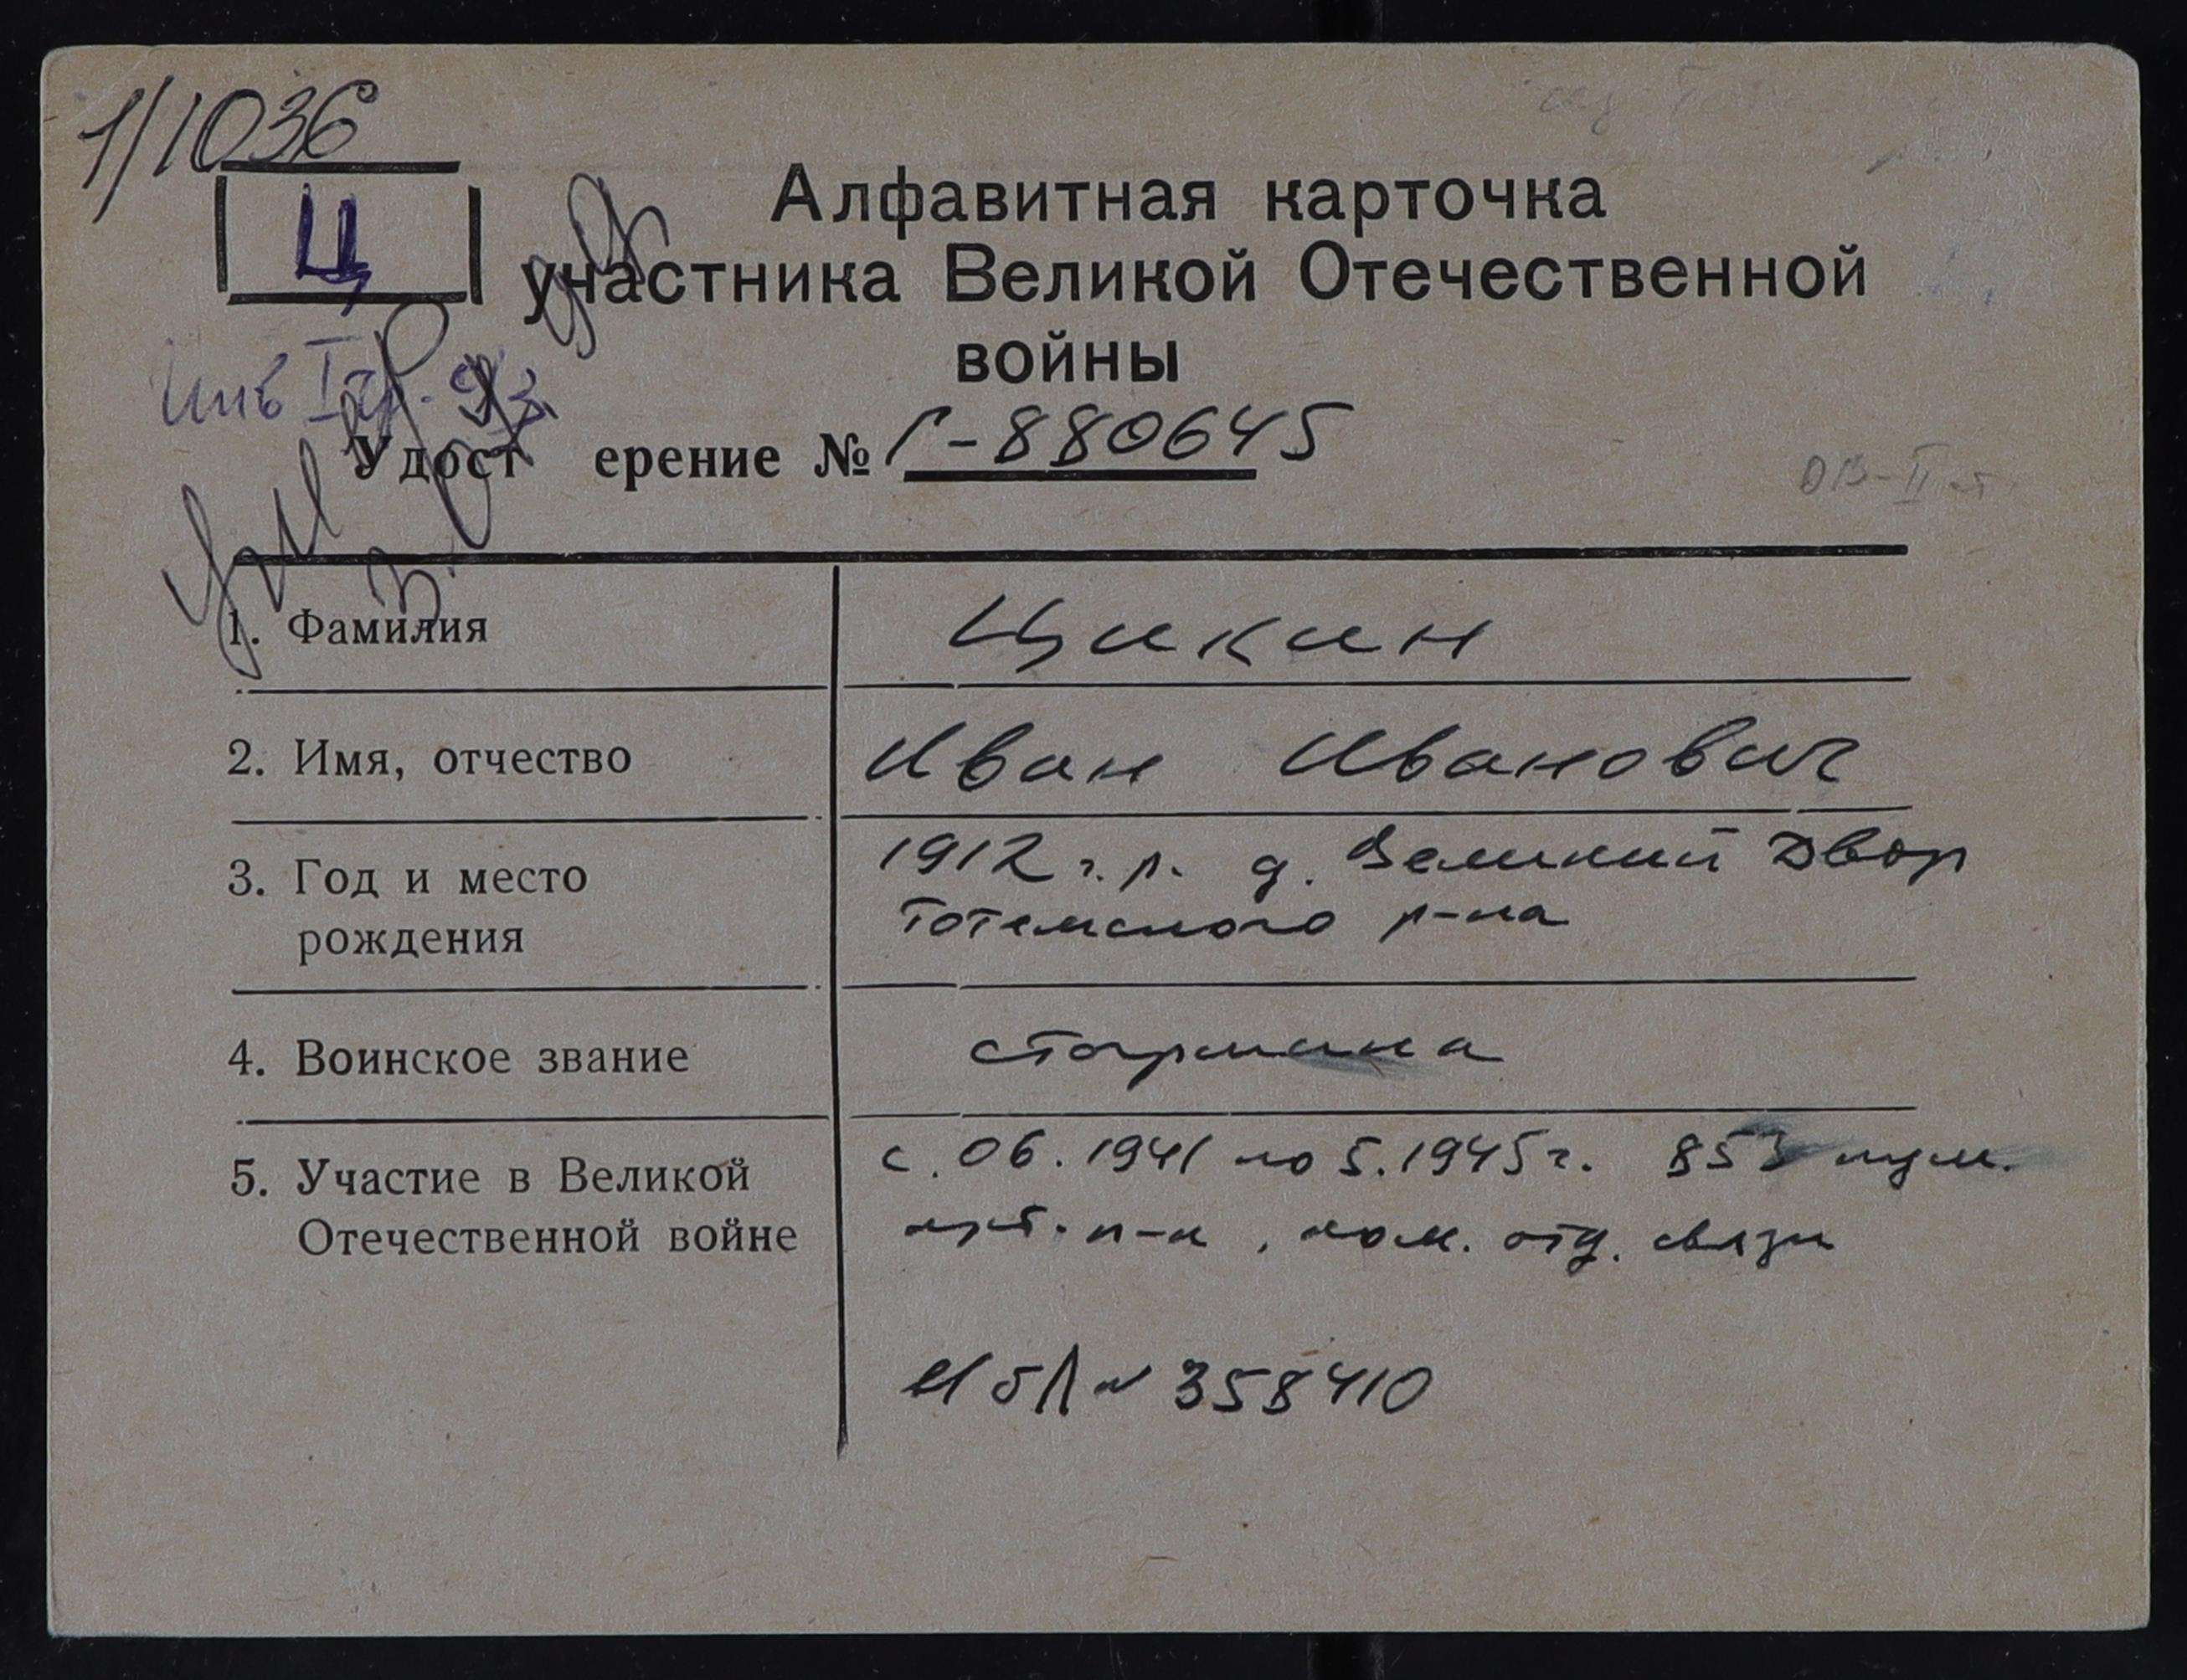 1/1036
Ц
Алфавитная карточка
участника Великой Отечественной
войны
Инв I гр.
Удост ерение № Г-880645
ОВ-II ст
Ум
1. Фамилия Цикин
2. Имя, отчество Иван Иванович
3. Год и место 1912 г.р. д. Великий Двор
рождения Тотемского р-на
4. Воинское звание старшина
5. Участие в Великой с. 06. 1941 по 5.1945г. 853 пул.
Отечественной войне арт. п-к, ком. отд. связи
И б/л № 358410